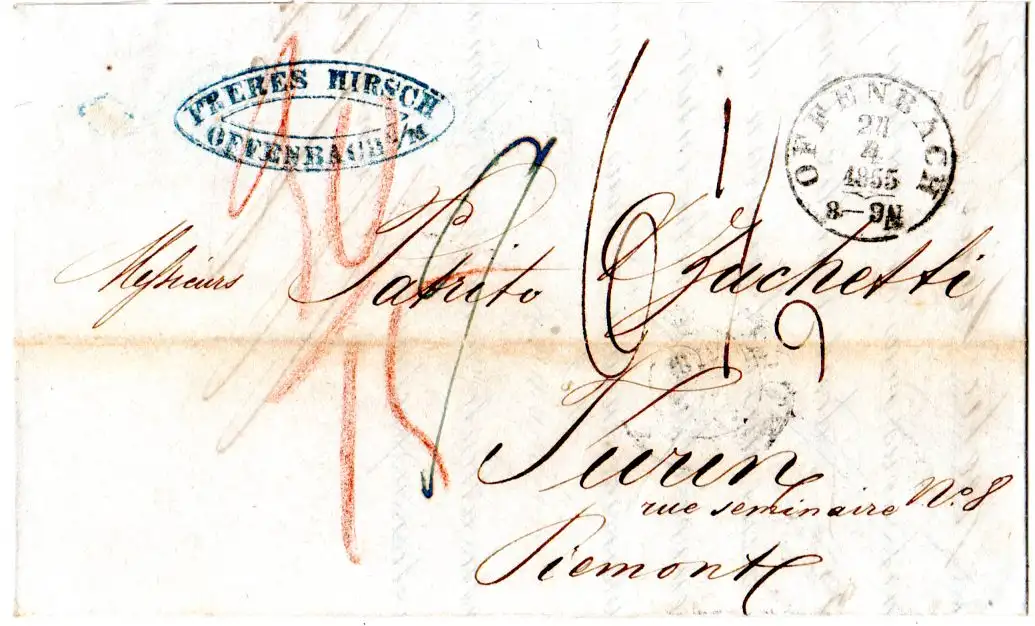 FRERES HIRSCH
OFFENBACH a/M
OFFENBACH
24
4
1855
8–9N
Messieurs Patrito & Zachetti
Turin
rue seminaire No. 8
Piemont